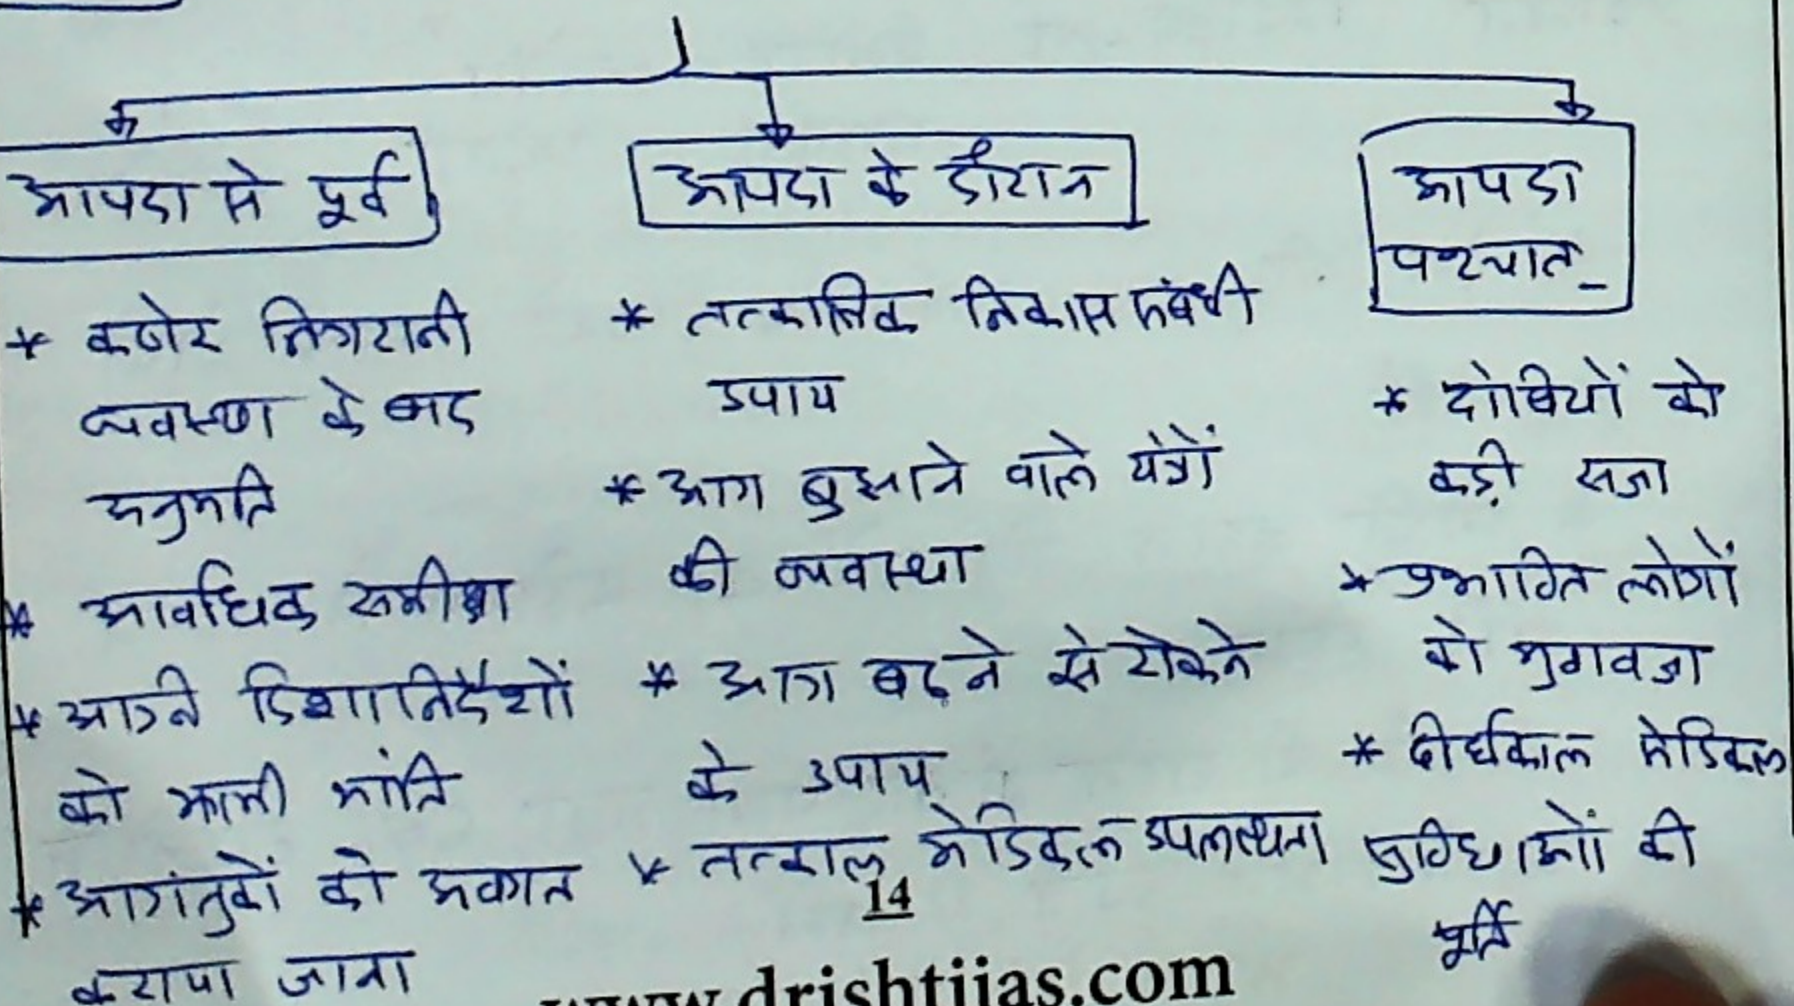 आपदा से पूर्व
* कठोर निगरानी
व्यवस्था के बाद
अनुमति
* आवधिक समीक्षा
* दिशानिर्देशों
को भाली भांति
* आगंतुकों को अवगत
कराया जाना
आपदा के दौरान
* तत्कालिक निकास संबंधी
उपाय
* आग बुझाने वाले यंत्रों
की व्यवस्था
* आग बढ़ने से रोकने
के उपाय
* तत्काल मेडिकल उपलब्धता
आपदा
पश्चात
* दोषियों को
कड़ी सजा
* प्रभावित लोगों
को मुआवजा
* दीर्घकाल मेडिकल
सुविधाओं की
पूर्ति
14
www.drishtiias.com